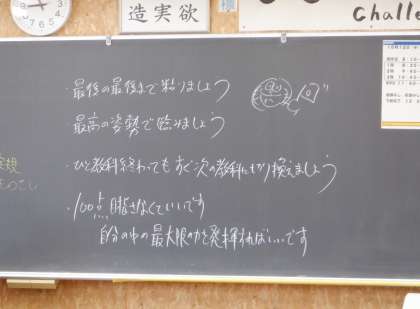 造実欲
Challe
・最後の最後まで粘りましょう
最高の姿勢で臨みましょう
・ひと教科終わってもすぐ次の教科に切り換えましょう
・100点目指さなくていいです
自分の中の最大限の力を発揮すればいいです